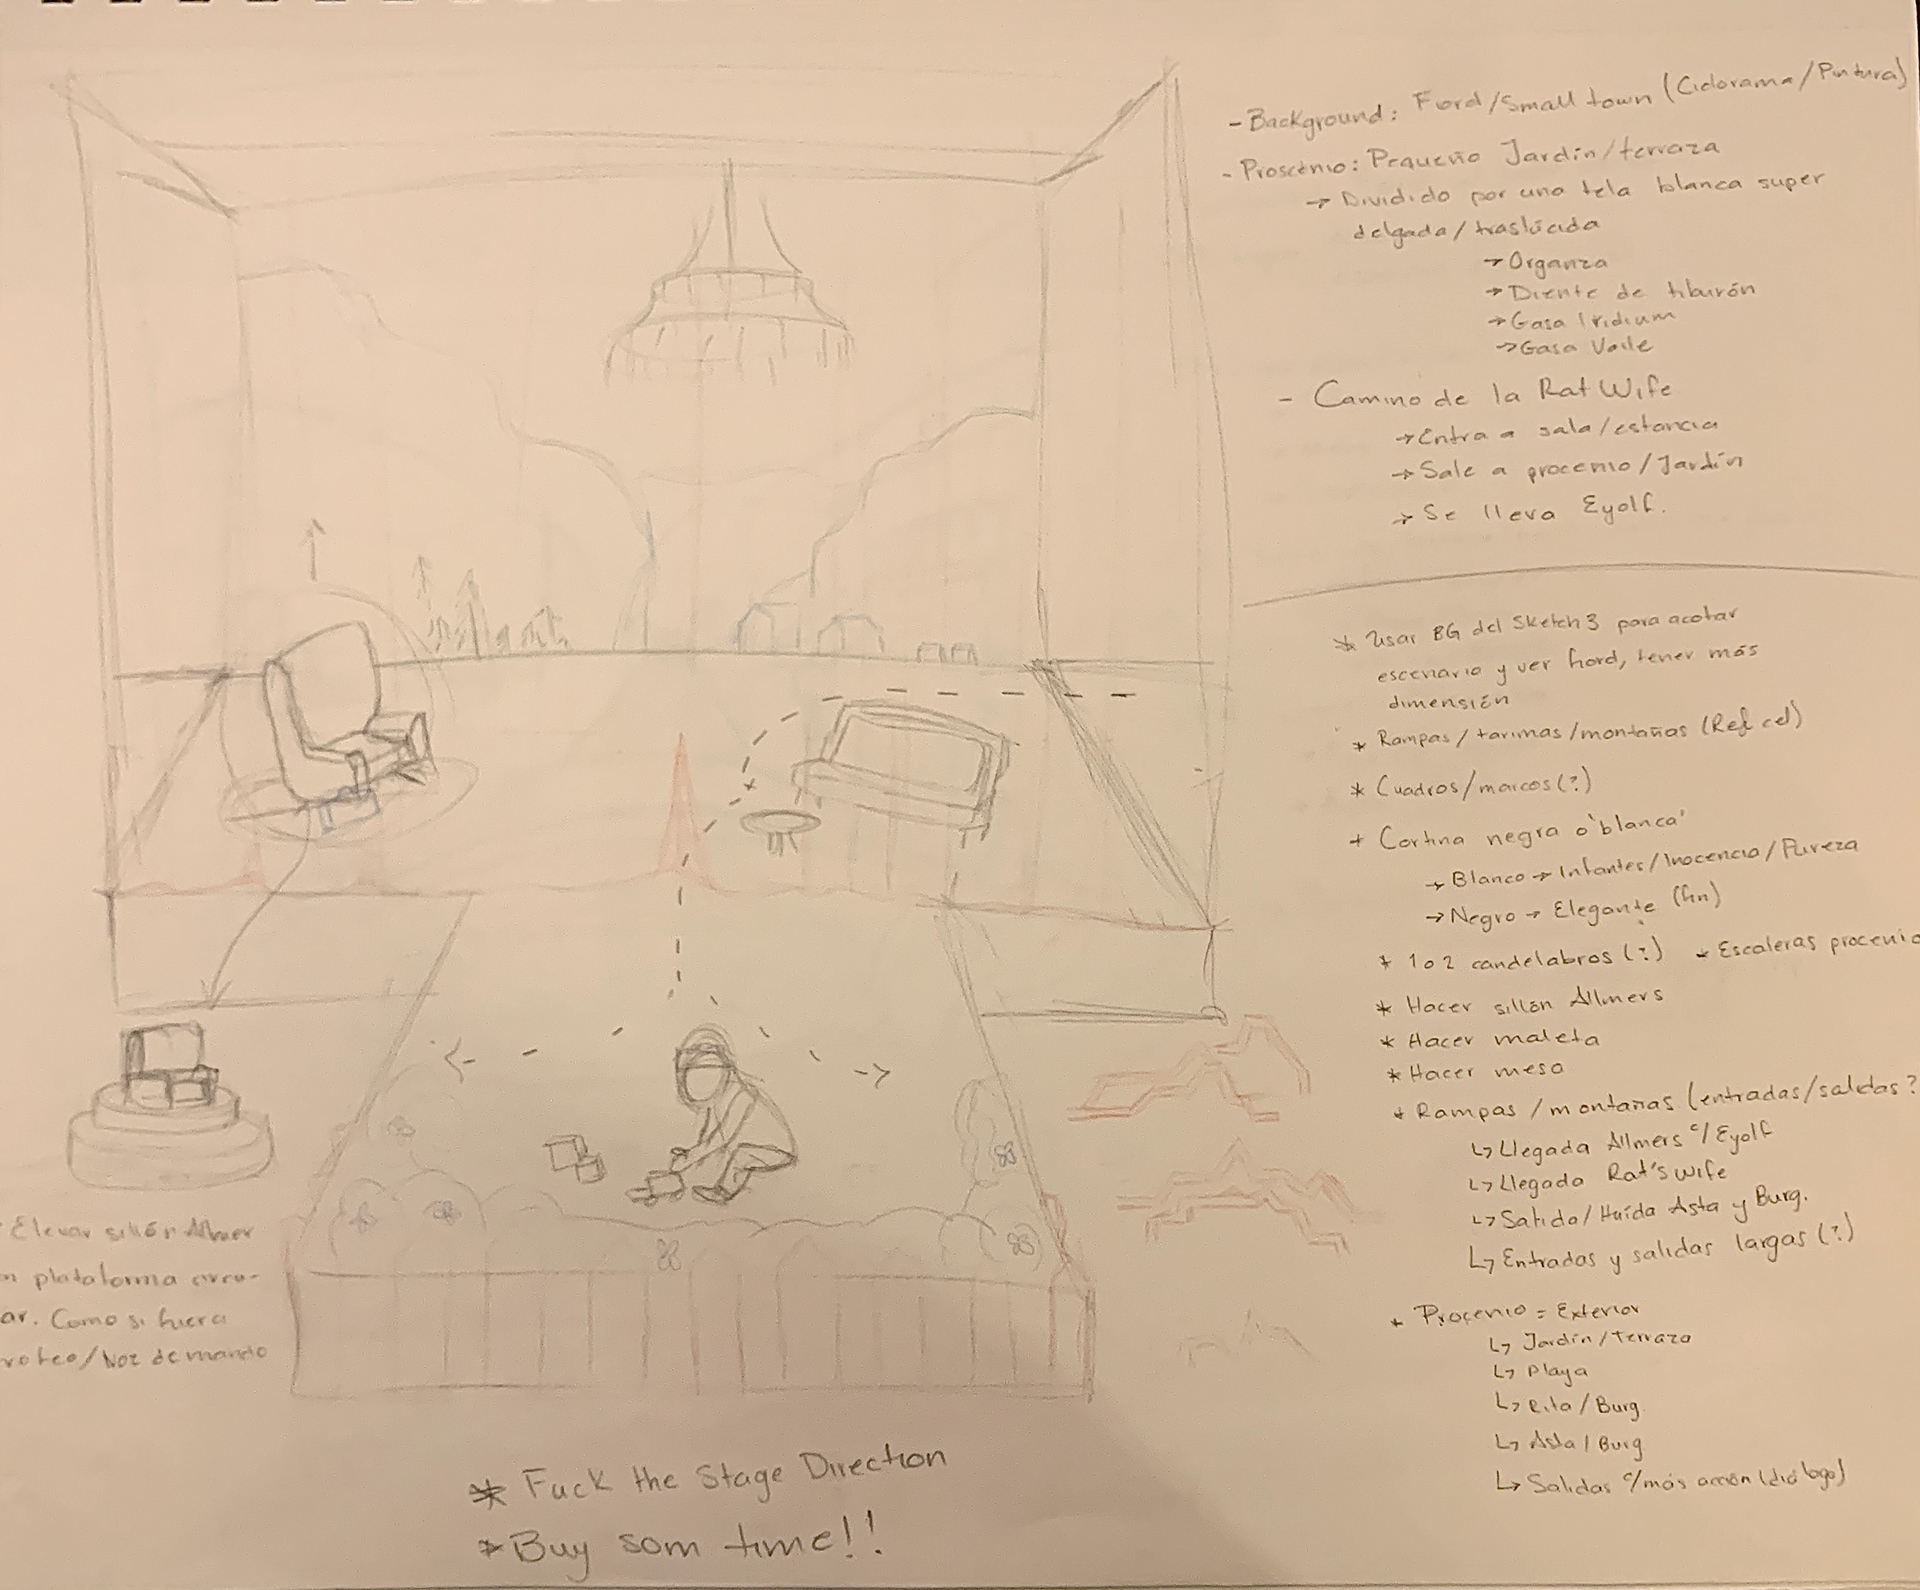 - Background: Fiord/Small town (Ciclorama/Pintura)
- Proscenio: Pequeño Jardín/terraza
→ Dividido por una tela blanca super
delgada/traslúcida
→ Organza
→ Diente de tiburón
→ Gasa Iridium
→ Gasa Voile
- Camino de la Rat Wife
→ Entra a sala/estancia
→ Sale a procenio/Jardín
→ Se lleva Eyolf.
* Usar BG del Sketch 3 para acotar
escenario y ver fiord, tener más
dimensión
* Rampas/tarimas/montañas (Ref cel)
* Cuadros/marcos(?)
* Cortina negra o 'blanca'
→ Blanco → Infantes/Inocencia/Pureza
→ Negro → Elegante (fin)
* 1 o 2 candelabros (?) * Escaleras procenio
* Hacer sillón Allmers
* Hacer maleta
* Hacer mesa
* Rampas/montañas (entradas/salidas?
↳ Llegada Allmers c/Eyolf
↳ Llegada Rat's wife
↳ Salida/Huída Asta y Burg.
↳ Entradas y salidas largas (?)
* Procenio = Exterior
↳ Jardín/Terraza
↳ Playa
↳ Rita/Burg
↳ Asta/Burg
↳ Salidas c/más acción (diálogo)
Elevar sillón Allmer
n plataforma circu-
ar. Como si fuera
rofeo/Voz de mando
* Fuck the Stage Direction
* Buy som time!!